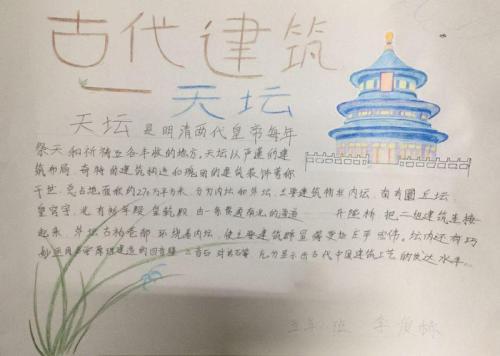 古代建筑
天坛
天坛是明清两代皇帝每年
祭天和祈祷五谷丰收的地方。天坛以严谨的建
筑布局、奇特的建筑构造和瑰丽的建筑装饰著称
于世。总占地面积约270万平方米,分为内坛和外坛,主要建筑物在内坛,南有圜丘坛
皇穹宇,北有祈年殿 皇乾殿 由一条贯通南北的甬道 丹陛桥 把二组建筑连接
起来,外坛古柏苍郁 环绕着内坛,使主要建筑群显得更加庄严宏伟。坛内还有巧
妙运用声学原理建造的回音壁 三音石 对话石等 充分显示出古代中国建筑工艺的发达水平
五年 班 李俊